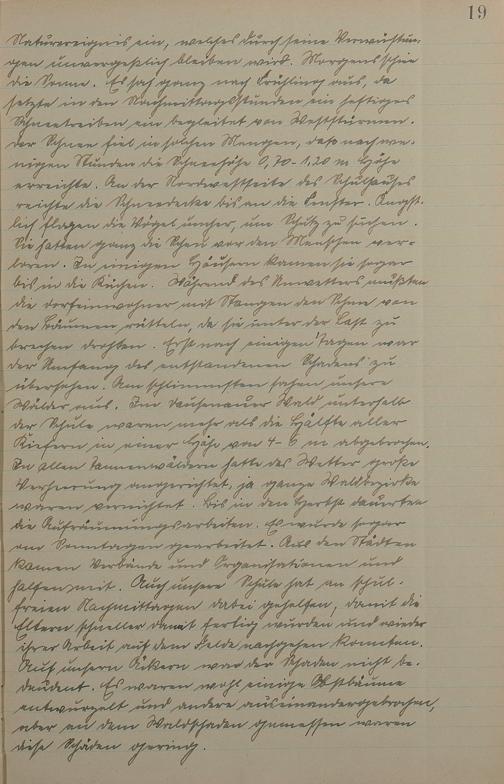 19
Naturereignis ein, welches durch seine Verwüstun-
gen unvergeßlich bleiben wird. Morgens schien
die Sonne. Es sah ganz nach Frühling aus, da
setzte in den Nachmittagsstunden ein heftiges
Schneetreiben ein begleitet von Weststürmen.
Der Schnee fiel in solchen Mengen, daß nach we-
nigen Stunden die Schneehöhe 0,70-1,20 m Höhe
erreichte. An der Nordwestseite des Schulhauses
reichte die Schneedecke bis an die Fenster. Ängst-
lich flogen die Vögel umher, um Schutz zu suchen.
Sie hatten ganz die Scheu vor den Menschen ver-
loren. In einigen Häusern kamen sie sogar
bis in die Küchen. Während des Unwetters mußten
die Dorfeinwohner mit Stangen den Schnee von
den Bäumen rütteln, da sie unter der Last zu
brechen drohten. Erst nach einigen Tagen war
der Umfang des entstandenen Schadens zu
übersehen. Am schlimmsten sahen unsere
Wälder aus. Im Dausenauer Wald unterhalb
der Schule waren mehr als die Hälfte aller
Kiefern in einer Höhe von 4-6 m abgebrochen.
In allen Tannenwäldern hatte das Wetter große
Verheerung angerichtet, ja ganze Waldbezirke
waren vernichtet. Bis in den Herbst dauerten
die Aufräumungsarbeiten. Es wurde sogar
an Sonntagen gearbeitet. Aus den Städten
kamen Verbände und Organisationen und
halfen mit. Auch unsere Schule hat an schul-
freien Nachmittagen dabei geholfen, damit die
Eltern schneller damit fertig wurden und wieder
ihrer Arbeit auf dem Felde nachgehen konnten.
Auf unsern Äckern war der Schaden nicht be-
deudent. Es waren wohl einige Obstbäume
entwurzelt und andere auseinandergebrochen,
aber an dem Waldschaden gemessen waren
diese Schäden gering.